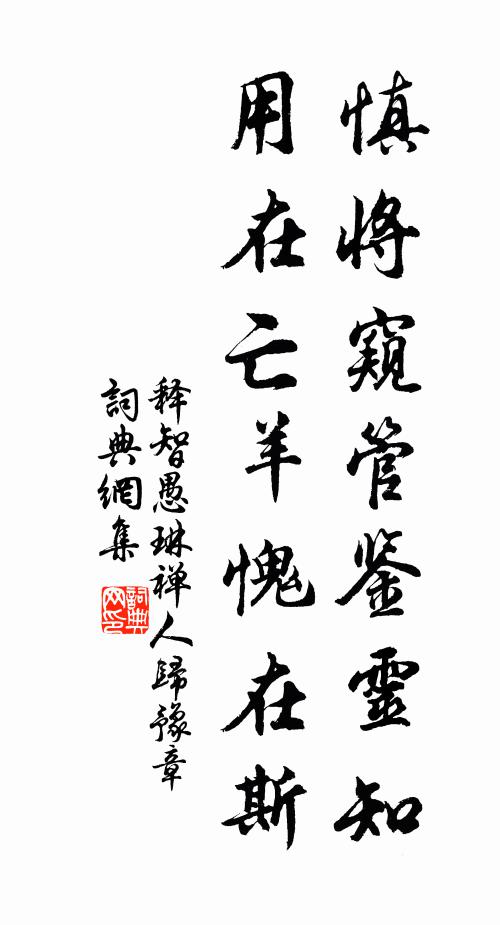 慎將窺管鉴靈知
用在亡羊愧在斯
释智愚琳禅人歸豫章
詞典網集
詞典网印